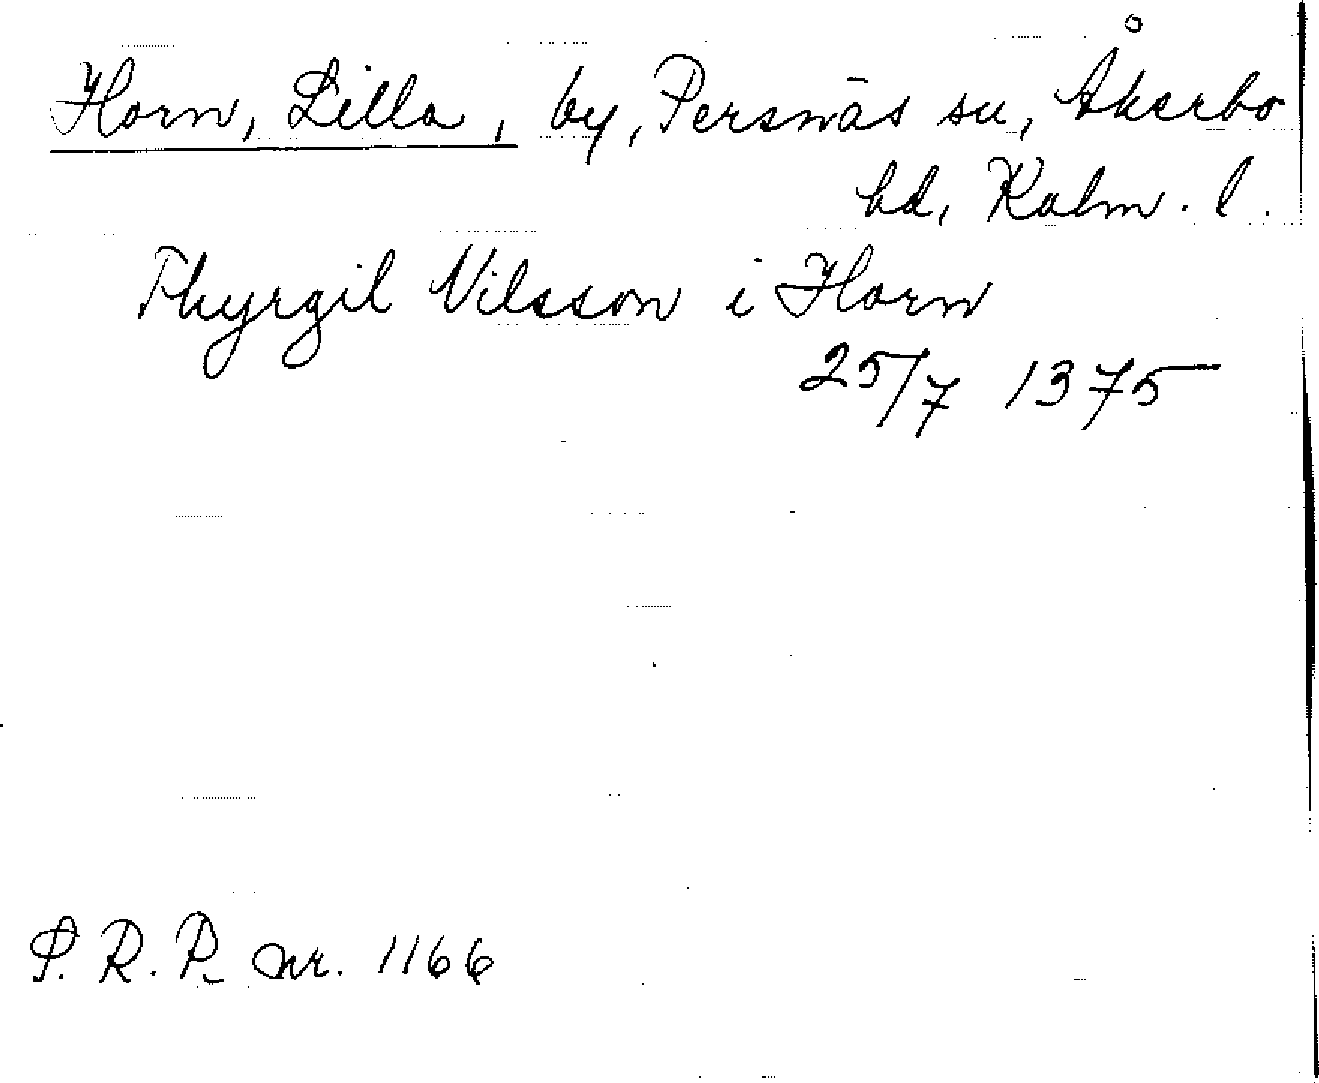 Horn, Lilla, by, Persnäs sn, Åkerbo
hd, Kalm. l.
Thyrgil Nilsson i Horn
25/7 1375
P. R. P. nr. 1166